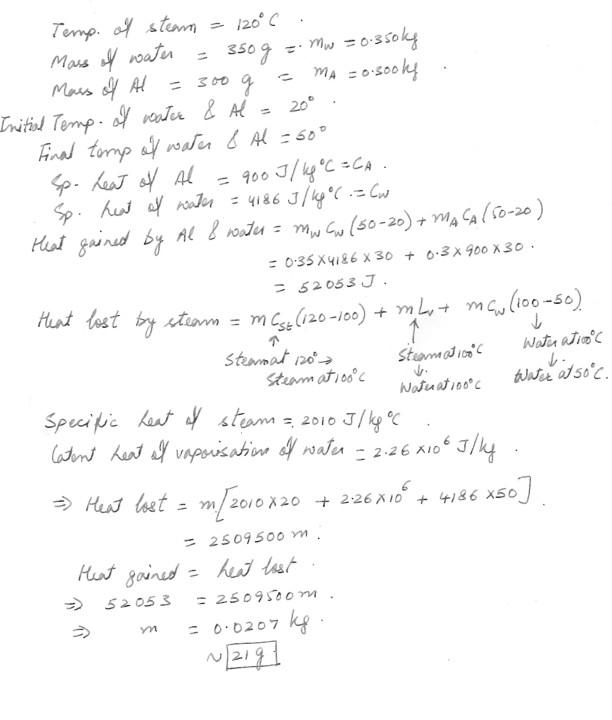 Temp. of steam = 120°C.
Mass of water = 350 g = mw = 0.350kg
Mass of Al = 300 g = mA = 0.300kg.
Initial Temp. of water & Al = 20°.
Final temp of water & Al = 50°
Sp. heat of Al = 900 J/kg°C = CA.
Sp. heat of water = 4186 J/kg°C. = Cw
Heat gained by Al & water = mw Cw (50-20) + mA CA (50-20)
= 0.35×4186×30 + 0.3×900×30.
= 52053 J.
Heat lost by steam = m Cst (120-100) + m Lv + m Cw (100-50)
↑ ↑ ↓
Steam at 120° → Steam at 100°C
Steam at 100°C ↓ Water at 100°C
Water at 100°C ↓ Water at 50°C.
Specific heat of steam = 2010 J/kg°C.
Latent heat of vaporisation of water = 2.26 ×10⁶ J/kg.
⇒ Heat lost = m [2010×20 + 2.26×10⁶ + 4186×50]
= 2509500 m.
Heat gained = heat lost.
⇒ 52053 = 2509500 m.
⇒ m = 0.0207 kg.
~ 21 g